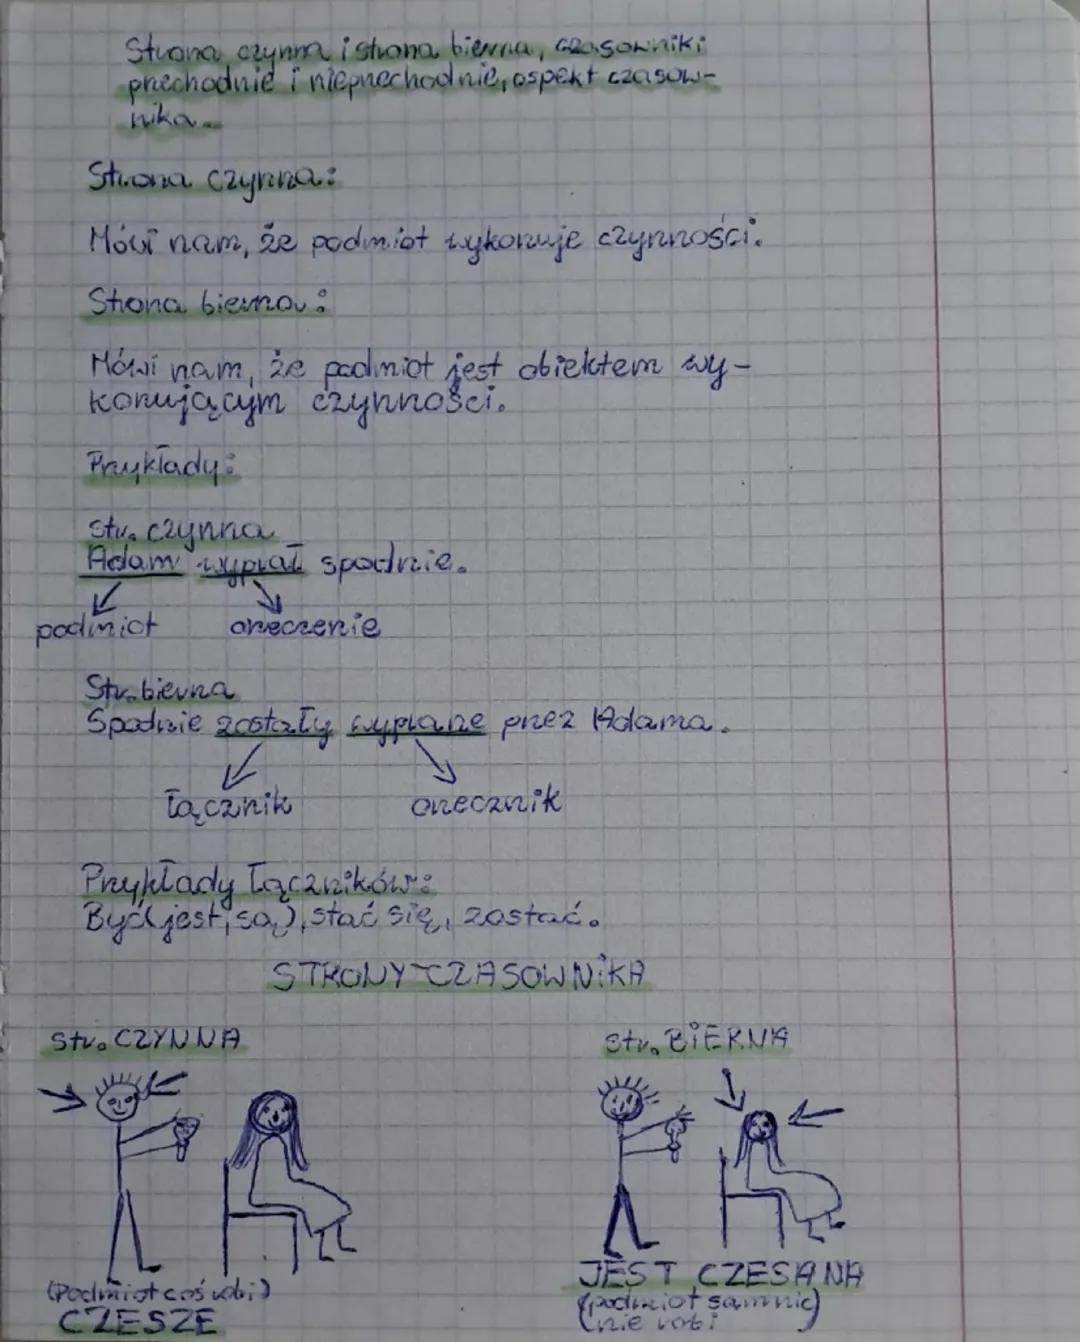 Strona czynna i strona bierna, czasowniki
przechodnie i nieprzechodnie, aspekt czasow-
nika.
Strona czynna:
Mówi nam, że podmiot wykonuje czynności.
Strona bierna:
Mówi nam, że podmiot jest obiektem wy-
konującym czynności.
Przykłady:
Str. czynna
Adam wyprał spodnie.
podmiot orzeczenie
Str. bierna
Spodnie zostały wyprane przez Adama.
łącznik orzecznik
Przykłady łączników:
Być(jest, są), stać się, zostać.
STRONY CZASOWNIKA
str. CZYNNA str. BIERNA
(Podmiot coś robi)
CZESZE
JEST CZESANA
(podmiot sam nic)
(nie robi